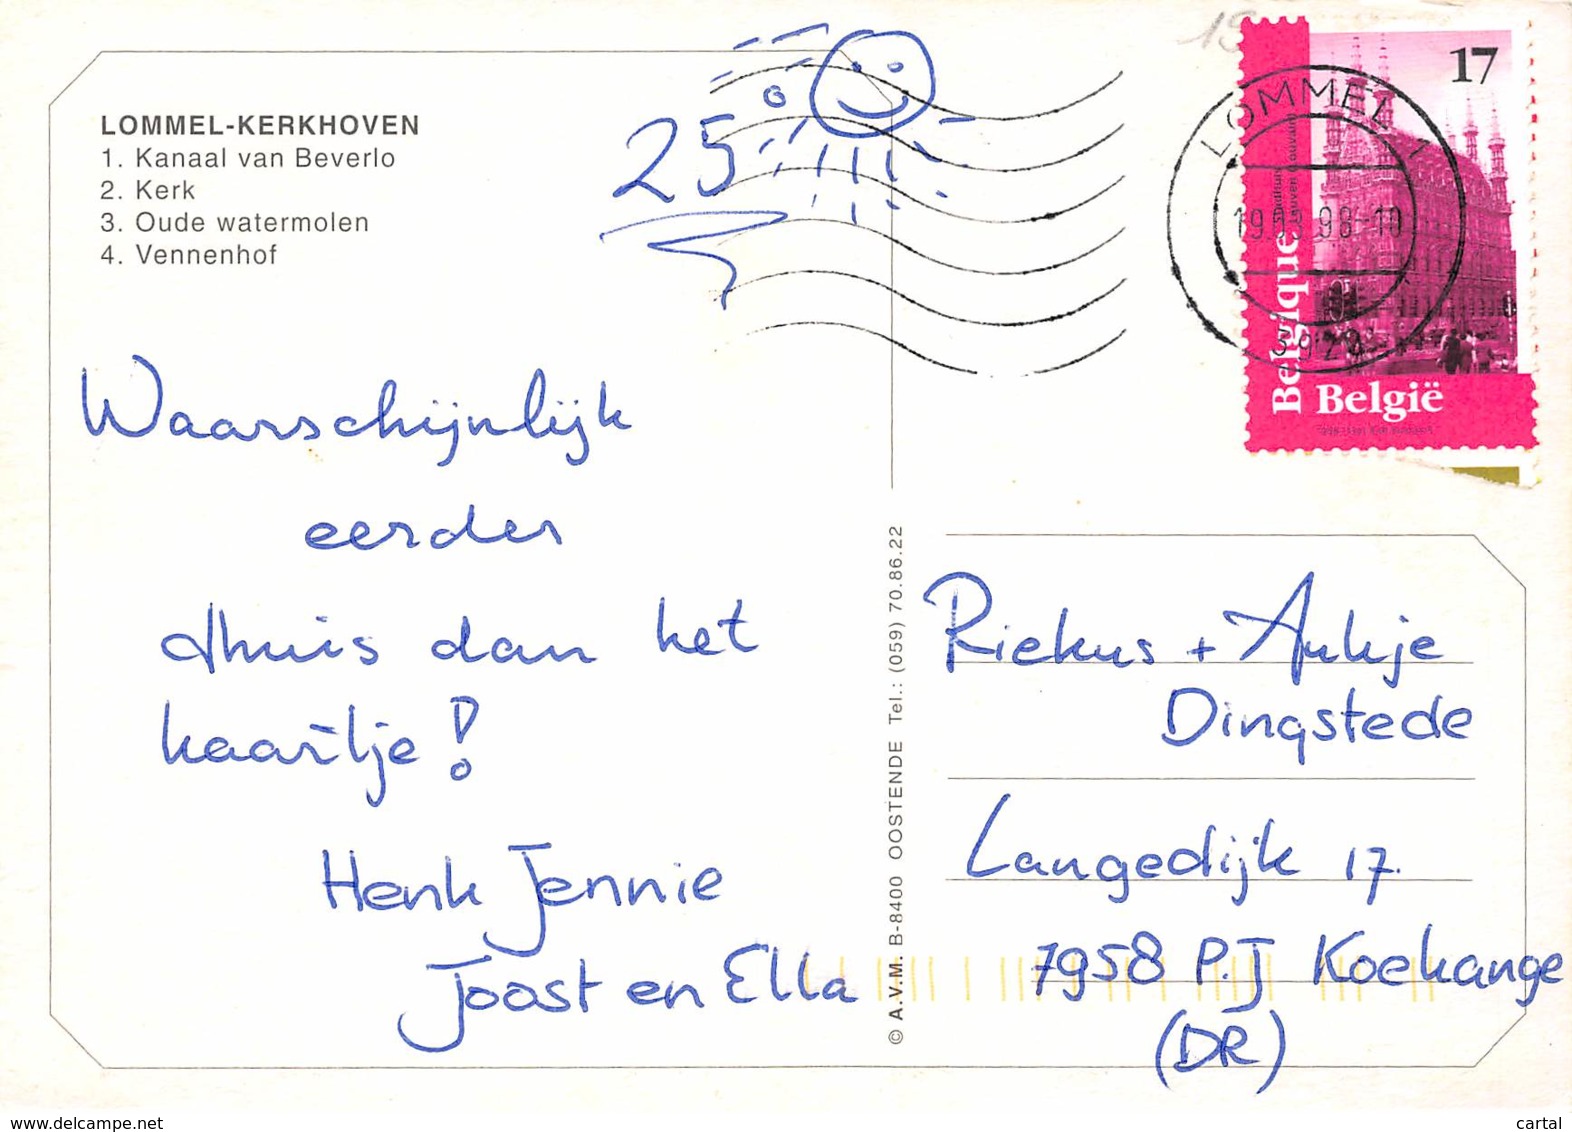 LOMMEL-KERKHOVEN
1. Kanaal van Beverlo
2. Kerk
3. Oude watermolen
4. Vennenhof
25°
Waarschijnlijk
eerder
thuis dan het
kaartje!
Henk Jennie
Joost en Ella
© A.V.M. B-8400 OOSTENDE Tel.: (059) 70.86.22
17
LOMMEL 1
98-10
3920
Belgique
België
Riekus + Aukje
Dingstede
Langedijk 17
7958 P.J Koekange
(DR)
www.delcampe.net
cartal